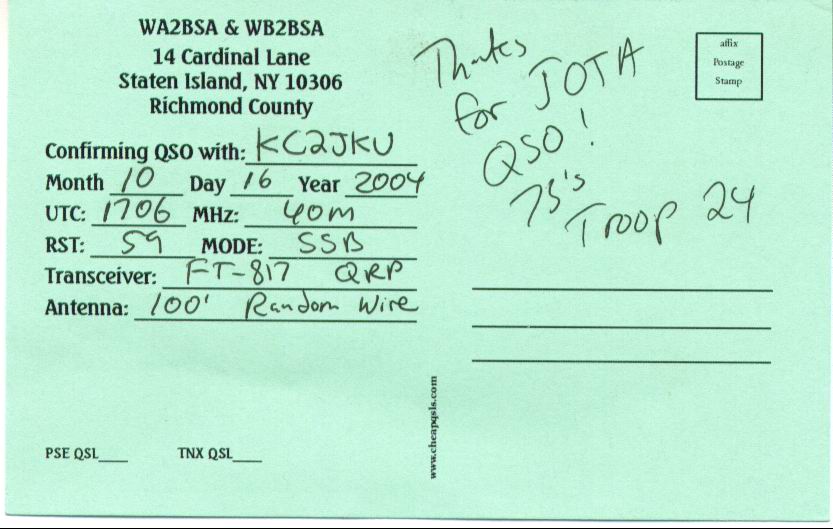 WA2BSA & WB2BSA
14 Cardinal Lane
Staten Island, NY 10306
Richmond County
Confirming QSO with: KC2JKU
Month 10 Day 16 Year 2004
UTC: 1706 MHz: 40m
RST: 59 MODE: SSB
Transceiver: FT-817 QRP
Antenna: 100' Random Wire
PSE QSL____ TNX QSL____
www.cheapqsls.com
Thanks
for JOTA
QSO!
73's
Troop 24
affix
Postage
Stamp